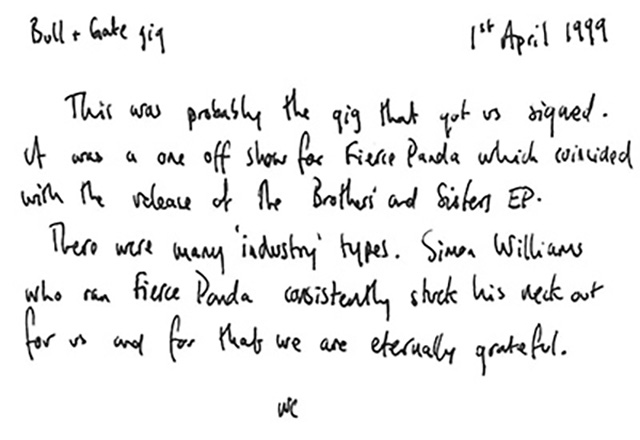 Bull + Gate gig 1st April 1999
This was probably the gig that got us signed.
It was a one off show for Fierce Panda which coincided
with the release of the Brothers and Sisters EP.
There were many 'industry' types. Simon Williams
who ran Fierce Panda consistently stuck his neck out
for us and for that we are eternally grateful.
WC